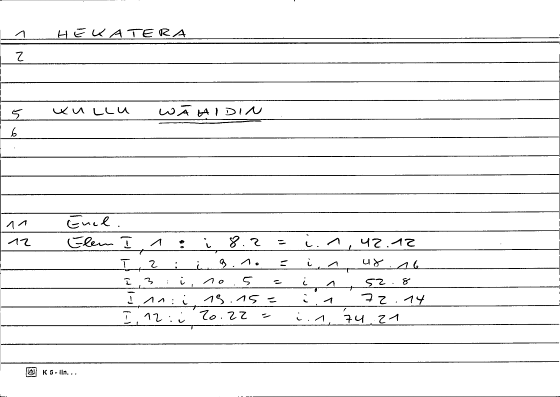 1 HEKATERA
2
5 KULLU WĀHIDIN
6
11 Eucl.
12 Elem I, 1 : i, 8.2 = i.1, 42.12
I, 2 : i, 9.1. = i, 1, 48.16
I, 3 : i, 10.5 = i, 1, 52.8
I, 11 : i, 19.15 = i, 1 72.14
I, 12 : i, 20.22 = i.1, 74.21
K 5 - lin. . .